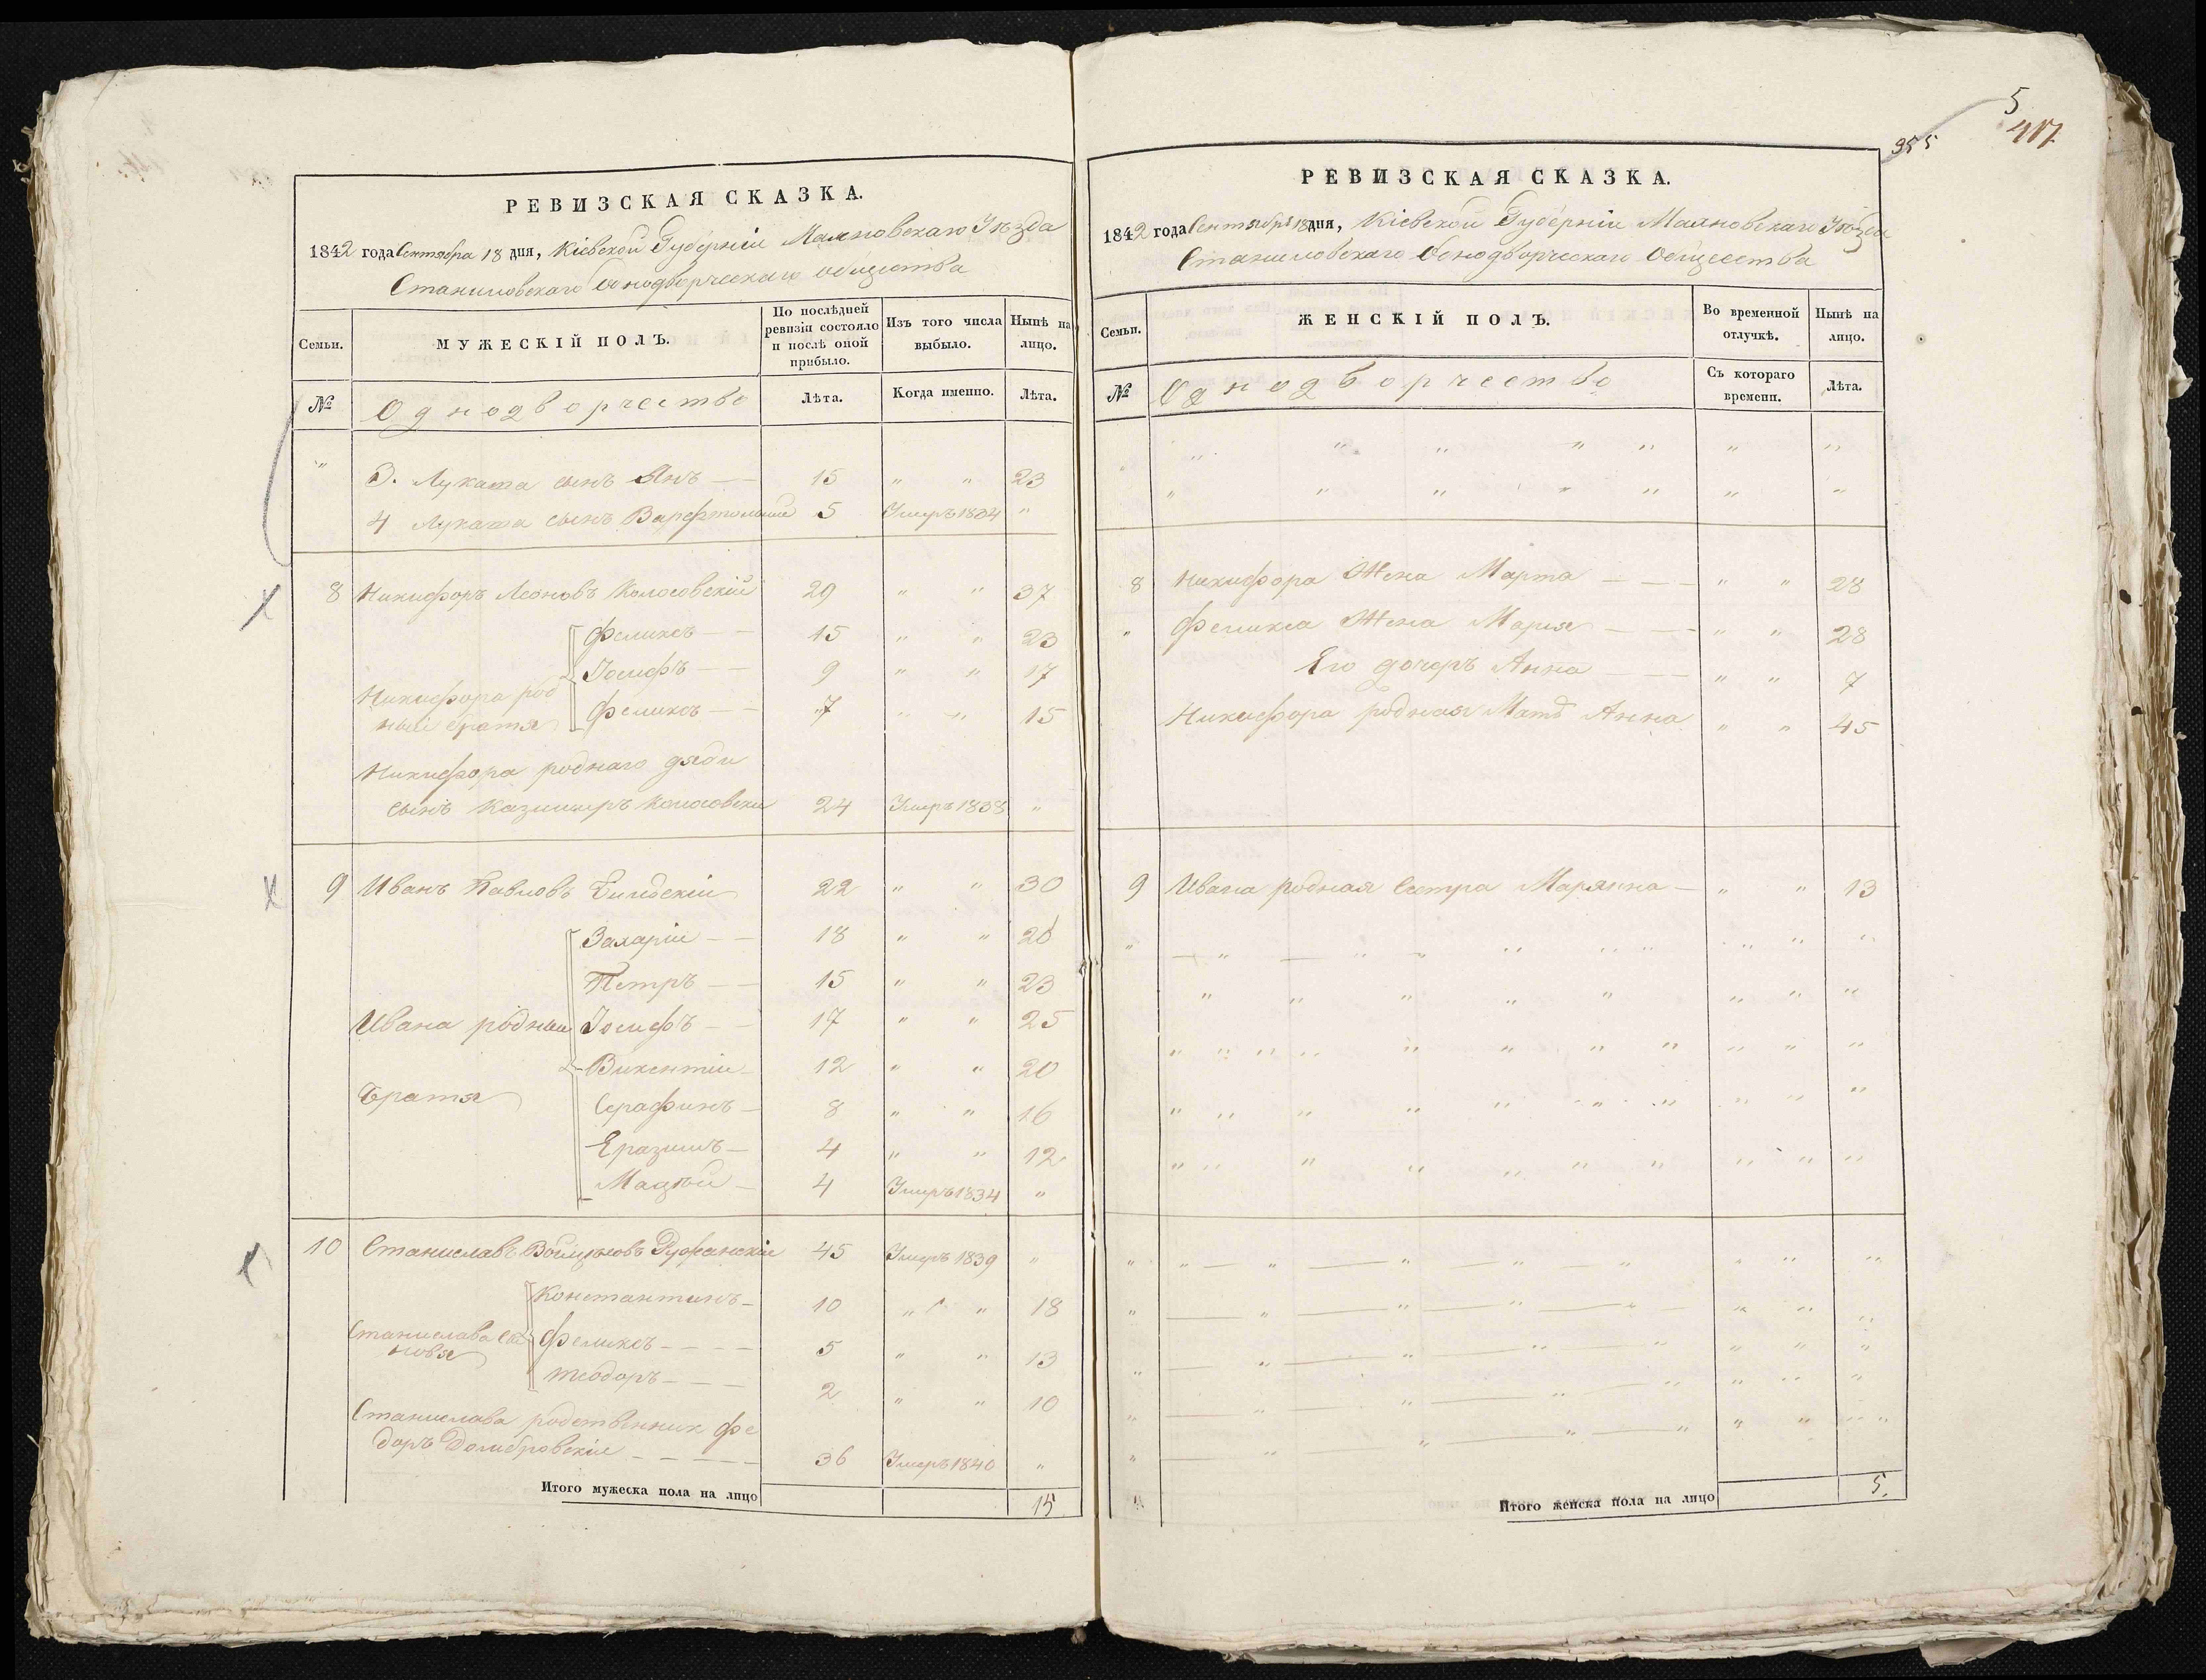 РЕВИЗСКАЯ СКАЗКА.
1842 года Сентября 18 дня, Кіевской Губерніи Махновскаго Уѣзда
Станиловскаго Однодворческаго общества
Семьи.
МУЖЕСКІЙ ПОЛЪ.
По послѣдней ревизіи состояло и послѣ оной прибыло.
Изъ того числа выбыло.
Нынѣ на лицо.
№
Однодворчество
Лѣта.
Когда именно.
Лѣта.
" 3. Луката сынъ Янъ — — 15 " " 23
4 Луката сынъ 5 Умеръ 1834 "
8 Никифоръ Леоновъ Колосовскій 29 " " 37
Феликсъ — — 15 " " 23
Іосифъ — — 9 " " 17
Никифора род
ніи братя
Феликсъ — — 7 " " 15
Никифора роднаго дяди
сынъ Казимиръ Колосовски 24 Умеръ 1838 "
9 Иванъ Павловъ 22 " " 30
Захаріи — — 18 " " 26
Петръ — — 15 " " 23
Ивана родныи Іосифъ — — 17 " " 25
Викентіи — 12 " " 20
братя
Серафинъ — 8 " " 16
Еразимъ — 4 " " 12
Мацѣй — 4 Умеръ 1834 "
10 Станиславъ Войцѣховъ 45 Умеръ 1839 "
Константинъ — 10 " " 18
Станислава сы
новя
Феликсъ — — — — 5 " " 13
Теодоръ — — — 2 " " 10
Станислава родственник Фе
доръ Домбровскіи — — — — — 36 Умеръ 1840 "
Итого мужеска пола на лицо 15
5
417
955
РЕВИЗСКАЯ СКАЗКА.
1842 года Сентября 18 дня, Кіевской Губерніи Махновскаго Уѣзда
Станиловскаго Однодворческаго Общества
Семьи.
ЖЕНСКІЙ ПОЛЪ.
Во временной отлучкѣ.
Нынѣ на лицо.
№
Однодворчество
Съ котораго времени.
Лѣта.
8 Никифора Жена Марта — — — " " 28
" Феликса Жена Мария — — — " " 28
Его дочеръ Анна — — — " " 7
Никифора родная Мать Анна " " 45
9 Ивана родная Сестра Марянна — " " 13
Итого женска пола на лицо 5.